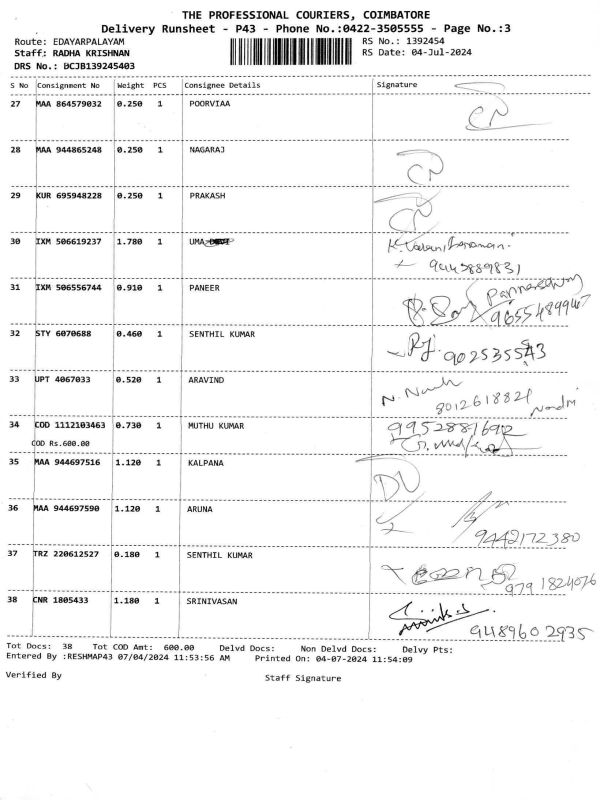 THE PROFESSIONAL COURIERS, COIMBATORE
Delivery Runsheet - P43 - Phone No.:0422-3505555 - Page No.:3
Route: EDAYARPALAYAM RS No.: 1392454
Staff: RADHA KRISHNAN RS Date: 04-Jul-2024
DRS No.: BCJB139245403
S No Consignment No Weight PCS Consignee Details Signature
27 MAA 864579032 0.250 1 POORVIAA
28 MAA 944865248 0.250 1 NAGARAJ
29 KUR 695948228 0.250 1 PRAKASH
30 IXM 506619237 1.780 1 UMA
9443889831
31 IXM 506556744 0.910 1 PANEER
9655489946
32 STY 6070688 0.460 1 SENTHIL KUMAR
33 UPT 4067033 0.520 1 ARAVIND
34 COD 1112103463 0.730 1 MUTHU KUMAR
COD Rs.600.00
35 MAA 944697516 1.120 1 KALPANA
36 MAA 944697590 1.120 1 ARUNA
9442172380
37 TRZ 220612527 0.180 1 SENTHIL KUMAR
9791824076
38 CNR 1805433 1.180 1 SRINIVASAN
9489602935
Tot Docs: 38 Tot COD Amt: 600.00 Delvd Docs: Non Delvd Docs: Delvy Pts:
Entered By :RESHMAP43 07/04/2024 11:53:56 AM Printed On: 04-07-2024 11:54:09
Verified By Staff Signature